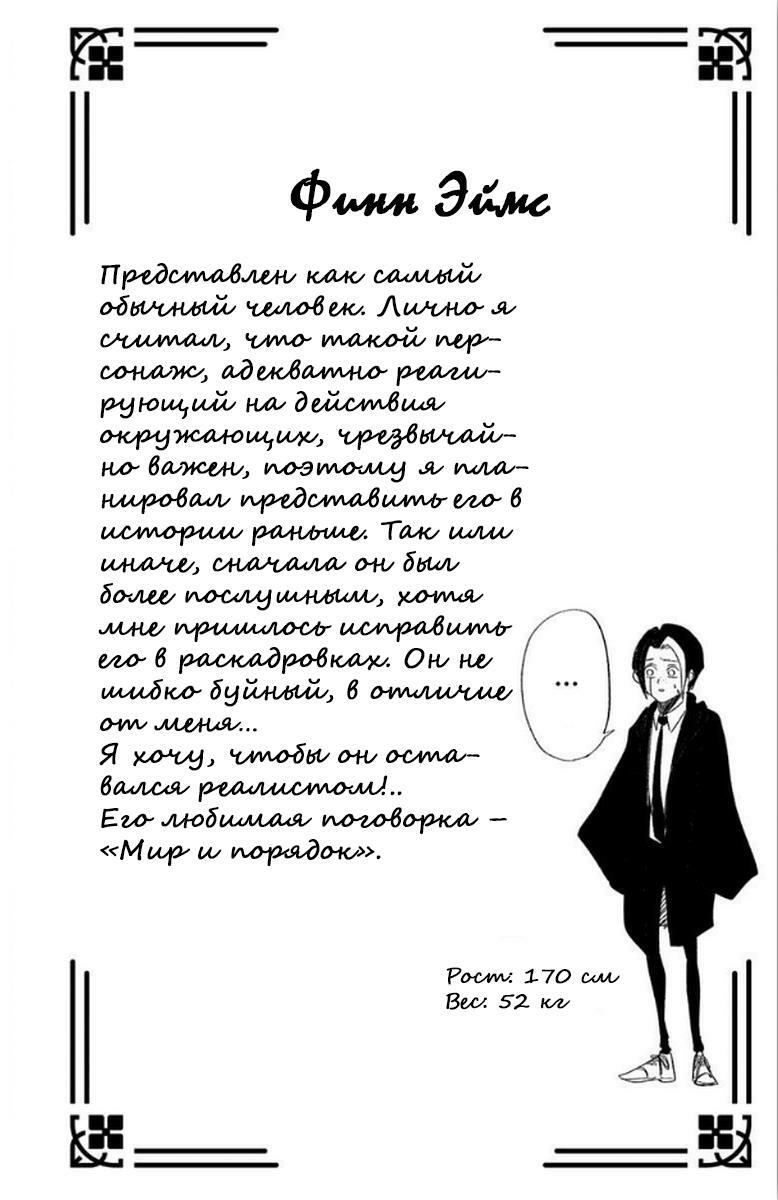 Финн Эймс
Представлен как самый
обычный человек. Лично я
считал, что такой пер-
сонаж, адекватно реаги-
рующий на действия
окружающих, чрезвычай-
но важен, поэтому я пла-
нировал представить его в
истории раньше. Так или
иначе, сначала он был
более послушным, хотя
мне пришлось исправить
его в раскадровках. Он не
шибко буйный, в отличие
от меня...
Я хочу, чтобы он оста-
вался реалистом!..
Его любимая поговорка –
«Мир и порядок».
...
Рост: 170 см
Вес: 52 кг